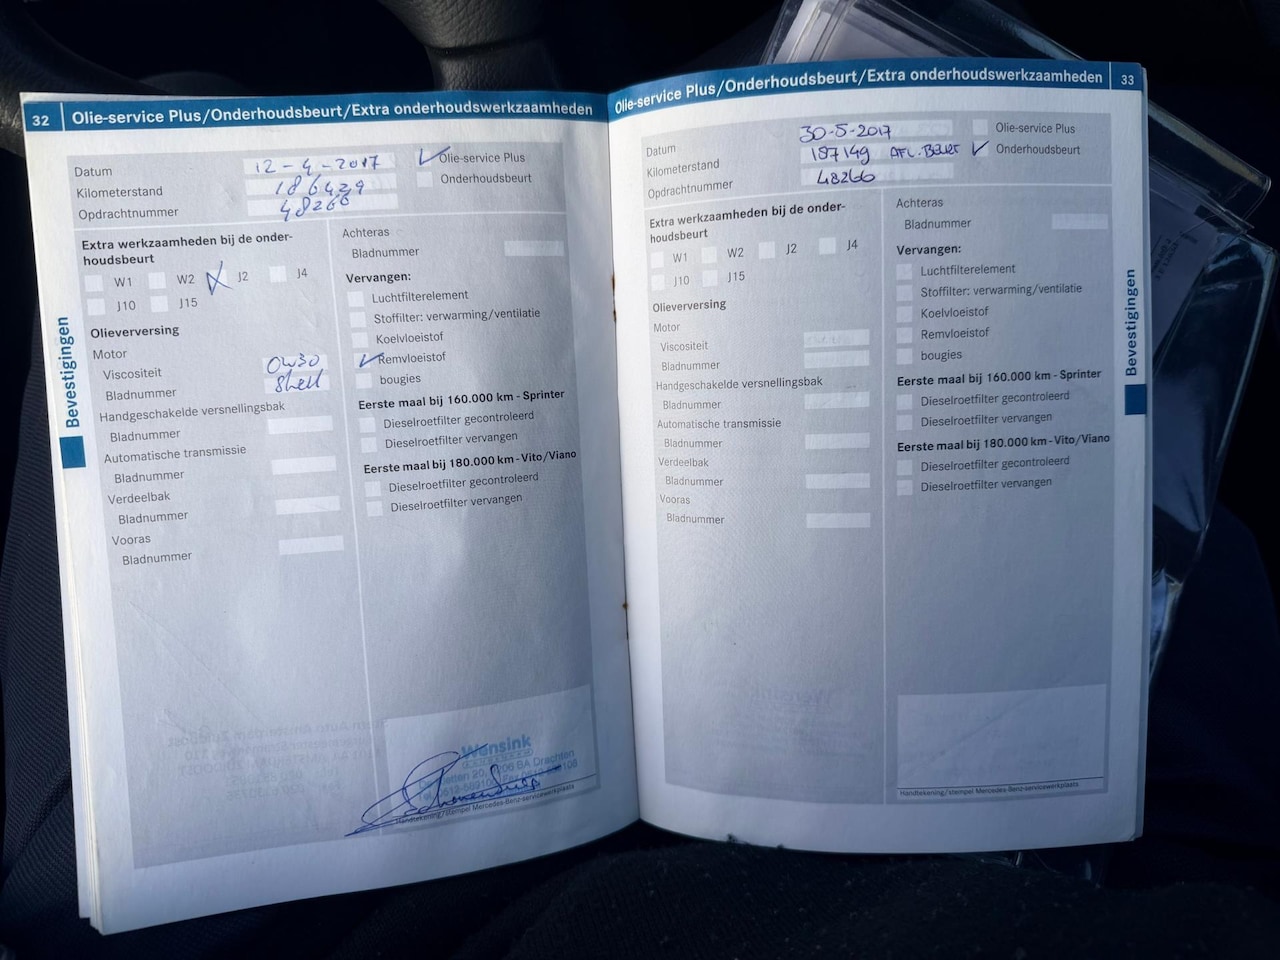 32
Olie-service Plus/Onderhoudsbeurt/Extra onderhoudswerkzaamheden
Datum 12-4-2017
Kilometerstand 186429
Opdrachtnummer 48266
Olie-service Plus
Onderhoudsbeurt
Extra werkzaamheden bij de onder-
houdsbeurt
W1 W2 J2 J4
J10 J15
Olieverversing
Motor
Viscositeit 0W30
Bladnummer Shell
Handgeschakelde versnellingsbak
Bladnummer
Automatische transmissie
Bladnummer
Verdeelbak
Bladnummer
Vooras
Bladnummer
Achteras
Bladnummer
Vervangen:
Luchtfilterelement
Stoffilter: verwarming/ventilatie
Koelvloeistof
Remvloeistof
bougies
Eerste maal bij 160.000 km - Sprinter
Dieselroetfilter gecontroleerd
Dieselroetfilter vervangen
Eerste maal bij 180.000 km - Vito/Viano
Dieselroetfilter gecontroleerd
Dieselroetfilter vervangen
Wensink
20, BA Drachten
Handtekening/stempel Mercedes-Benz-servicewerkplaats
Bevestigingen
Olie-service Plus/Onderhoudsbeurt/Extra onderhoudswerkzaamheden
33
Datum 30-5-2017
Kilometerstand 187149 AFL. Beurt
Opdrachtnummer 48266
Olie-service Plus
Onderhoudsbeurt
Extra werkzaamheden bij de onder-
houdsbeurt
W1 W2 J2 J4
J10 J15
Olieverversing
Motor
Viscositeit
Bladnummer
Handgeschakelde versnellingsbak
Bladnummer
Automatische transmissie
Bladnummer
Verdeelbak
Bladnummer
Vooras
Bladnummer
Achteras
Bladnummer
Vervangen:
Luchtfilterelement
Stoffilter: verwarming/ventilatie
Koelvloeistof
Remvloeistof
bougies
Eerste maal bij 160.000 km - Sprinter
Dieselroetfilter gecontroleerd
Dieselroetfilter vervangen
Eerste maal bij 180.000 km - Vito/Viano
Dieselroetfilter gecontroleerd
Dieselroetfilter vervangen
Handtekening/stempel Mercedes-Benz-servicewerkplaats
Bevestigingen